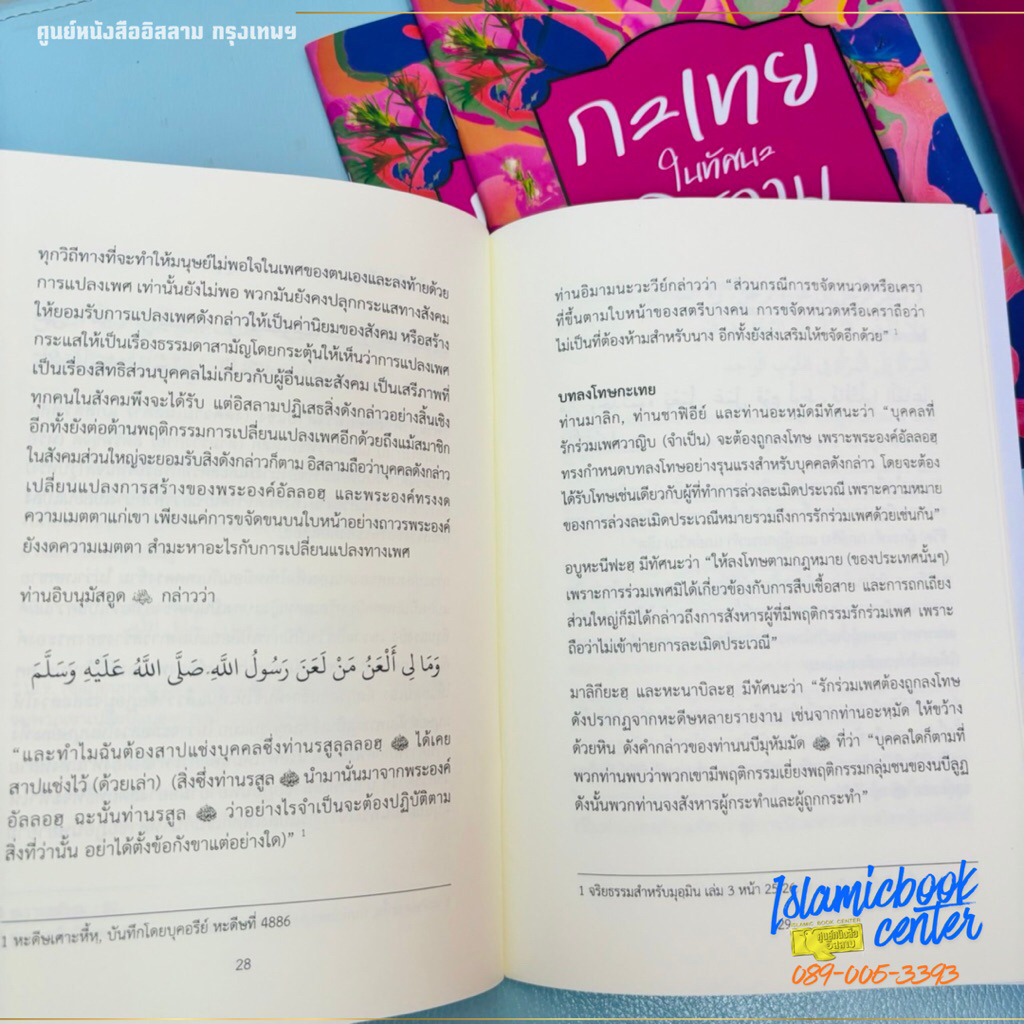 ศูนย์หนังสืออิสลาม กรุงเทพฯ
กะเทย
ในทัศนะ
ทุกวิถีทางที่จะทำให้มนุษย์ไม่พอใจในเพศของตนเองและลงท้ายด้วย
การแปลงเพศ เท่านั้นยังไม่พอ พวกมันยังคงปลุกกระแสทางสังคม
ให้ยอมรับการแปลงเพศดังกล่าวให้เป็นค่านิยมของสังคม หรือสร้าง
กระแสให้เป็นเรื่องธรรมดาสามัญโดยกระตุ้นให้เห็นว่าการแปลงเพศ
เป็นเรื่องสิทธิส่วนบุคคลไม่เกี่ยวกับผู้อื่นและสังคม เป็นเสรีภาพที่
ทุกคนในสังคมพึงจะได้รับ แต่อิสลามปฏิเสธสิ่งดังกล่าวอย่างสิ้นเชิง
อีกทั้งยังต่อต้านพฤติกรรมการเปลี่ยนแปลงเพศอีกด้วยถึงแม้สมาชิก
ในสังคมส่วนใหญ่จะยอมรับสิ่งดังกล่าวก็ตาม อิสลามถือว่าบุคคลดังกล่าว
เปลี่ยนแปลงการสร้างของพระองค์อัลลอฮฺ และพระองค์ทรงงด
ความเมตตาแก่เขา เพียงแค่การขจัดขนบนใบหน้าอย่างถาวรพระองค์
ยังงดความเมตตา สำมะหาอะไรกับการเปลี่ยนแปลงทางเพศ
ท่านอิบนุมัสอูด กล่าวว่า
وَمَا لِي أَلْعَنُ مَنْ لَعَنَ رَسُولُ اللَّهِ صَلَّى اللَّهُ عَلَيْهِ وَسَلَّمَ
“และทำไมฉันต้องสาปแช่งบุคคลซึ่งท่านรสูลุลลอฮฺ ﷺ ได้เคย
สาปแช่งไว้ (ด้วยเล่า) (สิ่งซึ่งท่านรสูล ﷺ นำมานั่นมาจากพระองค์
อัลลอฮฺ ฉะนั้นท่านรสูล ﷺ ว่าอย่างไรจำเป็นจะต้องปฏิบัติตาม
สิ่งที่ว่านั้น อย่าได้ตั้งข้อกังขาแต่อย่างใด)” 1
1 หะดีษเศาะหี้หฺ, บันทึกโดยบุคอรีย์ หะดีษที่ 4886
28
ท่านอิมามนะวะวีย์กล่าวว่า “ส่วนกรณีการขจัดหนวดหรือเครา
ที่ขึ้นตามใบหน้าของสตรีบางคน การขจัดหนวดหรือเคราถือว่า
ไม่เป็นที่ต้องห้ามสำหรับนาง อีกทั้งยังส่งเสริมให้ขจัดอีกด้วย” 1
บทลงโทษกะเทย
ท่านมาลิก, ท่านชาฟิอีย์ และท่านอะหฺมัดมีทัศนะว่า “บุคคลที่
รักร่วมเพศวาญิบ (จำเป็น) จะต้องถูกลงโทษ เพราะพระองค์อัลลอฮฺ
ทรงกำหนดบทลงโทษอย่างรุนแรงสำหรับบุคคลดังกล่าว โดยจะต้อง
ได้รับโทษเช่นเดียวกับผู้ที่ทำการล่วงละเมิดประเวณี เพราะความหมาย
ของการล่วงละเมิดประเวณีหมายรวมถึงการรักร่วมเพศด้วยเช่นกัน”
อบูหะนีฟะฮฺ มีทัศนะว่า “ให้ลงโทษตามกฎหมาย (ของประเทศนั้นๆ)
เพราะการร่วมเพศมิได้เกี่ยวข้องกับการสืบเชื้อสาย และการถกเถียง
ส่วนใหญ่ก็มิได้กล่าวถึงการสังหารผู้ที่มีพฤติกรรมรักร่วมเพศ เพราะ
ถือว่าไม่เข้าข่ายการละเมิดประเวณี”
มาลิกียะฮฺ และหะนาบิละฮฺ มีทัศนะว่า “รักร่วมเพศต้องถูกลงโทษ
ดังปรากฏจากหะดีษหลายรายงาน เช่นจากท่านอะหฺมัด ให้ขว้าง
ด้วยหิน ดังคำกล่าวของท่านนบีมุหัมมัด ﷺ ที่ว่า “บุคคลใดก็ตามที่
พวกท่านพบว่าพวกเขามีพฤติกรรมเยี่ยงพฤติกรรมกลุ่มชนของนบีลูฏ
ดังนั้นพวกท่านจงสังหารผู้กระทำและผู้ถูกกระทำ”
1 จริยธรรมสำหรับมุอฺมิน เล่ม 3 หน้า 25-26
29
Islamicbook
center
ISLAMIC BOOK CENTER
ศูนย์หนังสือ
อิสลาม
089-005-3393